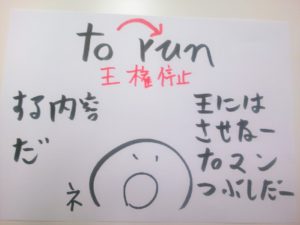 to run
王権停止
する内容
だ
王には
させねー
ナロマン
つぶしだー
ネ